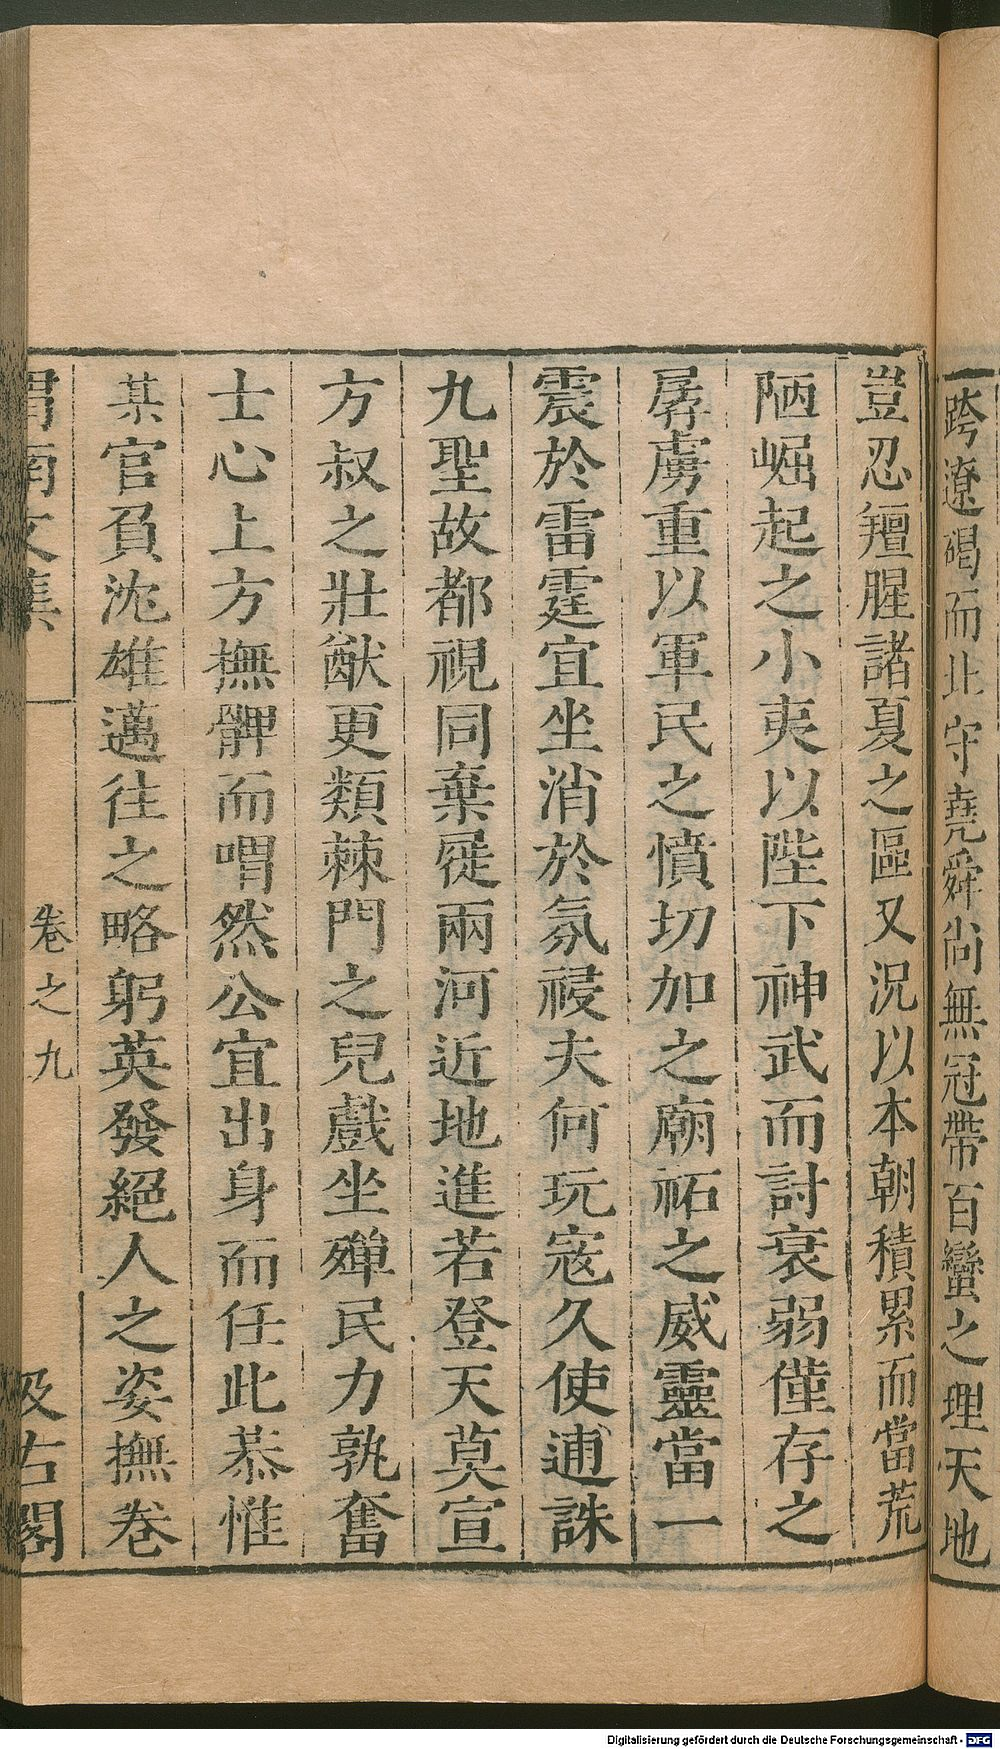 跨遼碣而北守堯舜尚無冠帶百蠻之理天地
豈忍羶腥諸夏之區又況以本朝積累而當荒
陋崛起之小夷以陛下神武而討衰弱僅存之
孱虜重以軍民之憤切加之廟祏之威靈當一
震於雷霆宜坐消於氛祲夫何玩寇久使逋誅
九聖故都視同棄屣兩河近地進若登天莫宣
方叔之壯猷更類棘門之兒戲坐殫民力孰奮
士心上方撫髀而喟然公宜出身而任此恭惟
某官負沈雄邁往之略躬英發絕人之姿撫卷
渭南文集
卷之九
汲古閣
Digitalisierung gefördert durch die Deutsche Forschungsgemeinschaft - DFG